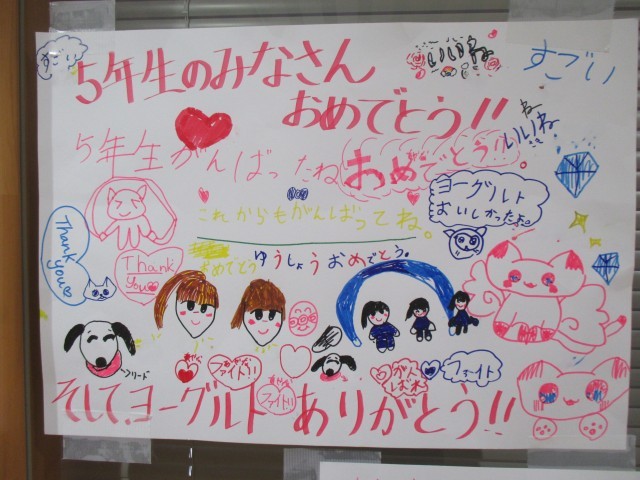 すごい
5年生のみなさん
いいね
すごい
おめでとう!!
ね
いいね
5年生がんばったね
おめでとう!!
ヨーグルト
おいしかったよ。
これからもがんばってね。
Thank
you
Thank
you
おめでとう
ゆうしょうおめでとう。
フリード
ファイト!!
ファイト!!
がん
ばれ
ファイト
そして、ヨーグルト ありがとう!!